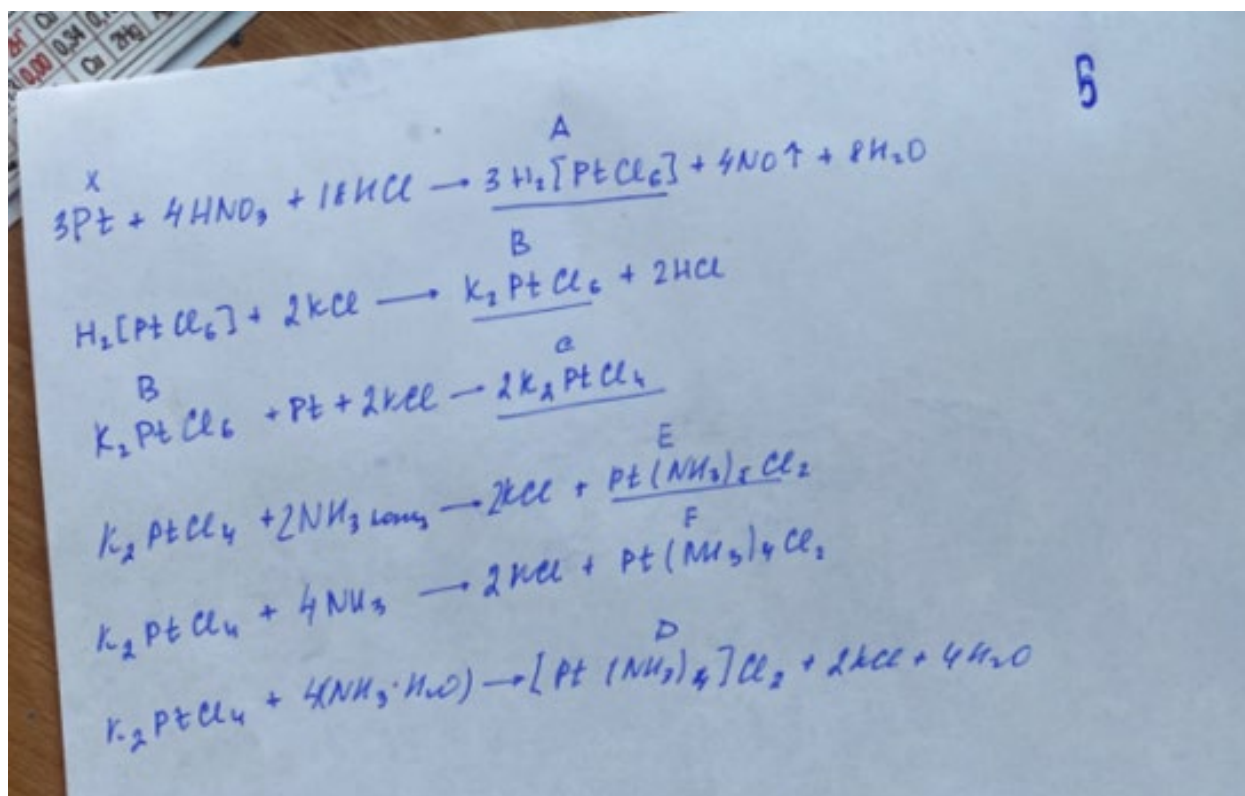 2H⁺ Cu
0,00 0,34
Cu 2Hg
5
X A
3Pt + 4HNO₃ + 18HCl → 3H₂[PtCl₆] + 4NO↑ + 8H₂O
B
H₂[PtCl₆] + 2KCl → K₂PtCl₆ + 2HCl
B C
K₂PtCl₆ + Pt + 2KCl → 2K₂PtCl₄
E
K₂PtCl₄ + 2NH₃ конц → 2KCl + Pt(NH₃)₂Cl₂
F
K₂PtCl₄ + 4NH₃ → 2KCl + Pt(NH₃)₄Cl₂
D
K₂PtCl₄ + 4(NH₃·H₂O) → [Pt(NH₃)₄]Cl₂ + 2KCl + 4H₂O